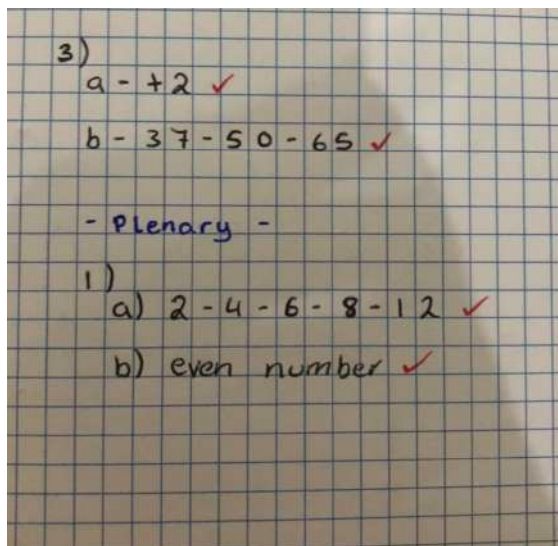 3)
a - +2 ✓
b - 37 - 50 - 65 ✓
- Plenary -
1)
a) 2 - 4 - 6 - 8 - 12 ✓
b) even number ✓